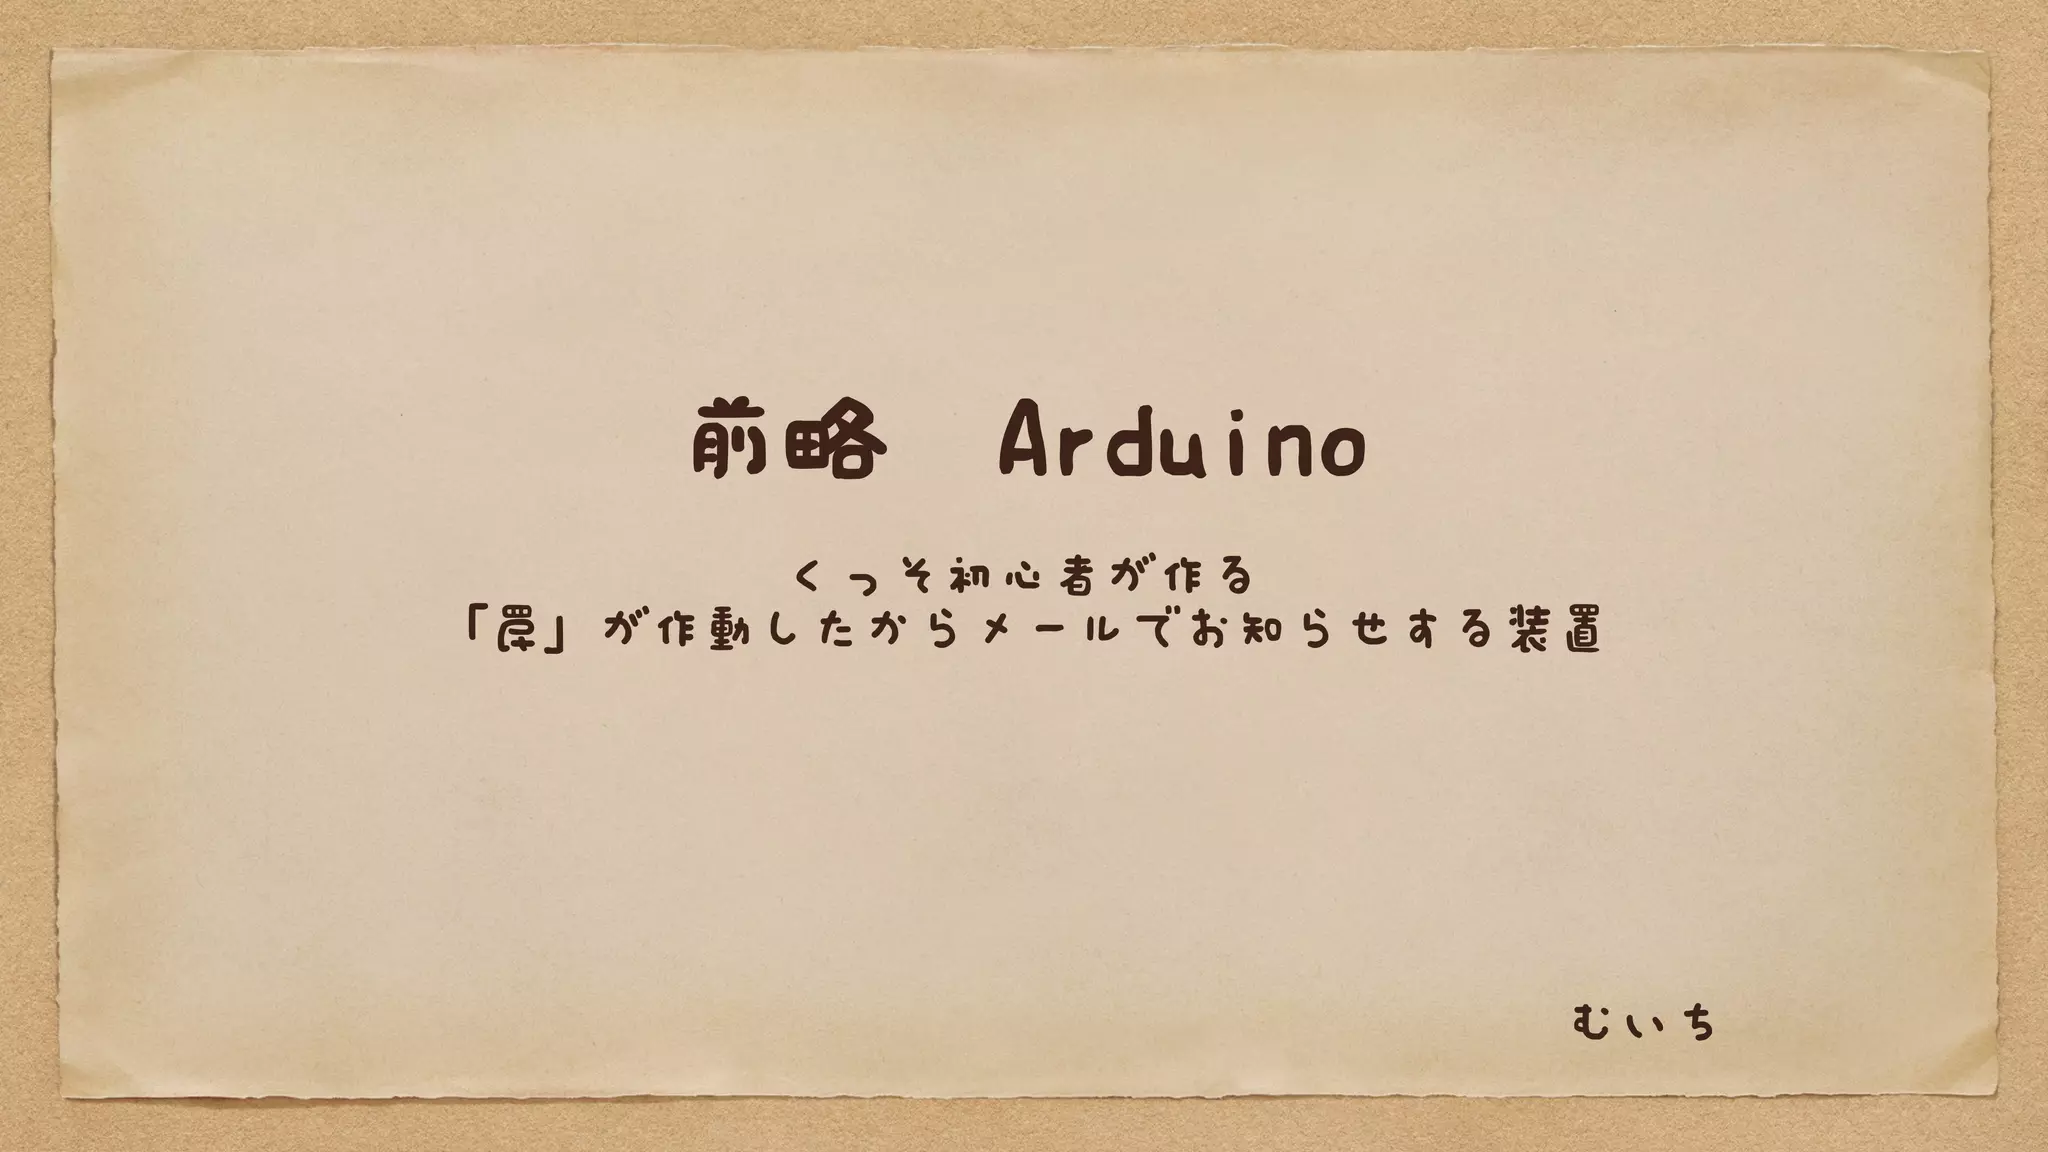 前略　Arduino
くっそ初心者が作る
「罠」が作動したからメールでお知らせする装置
むいち